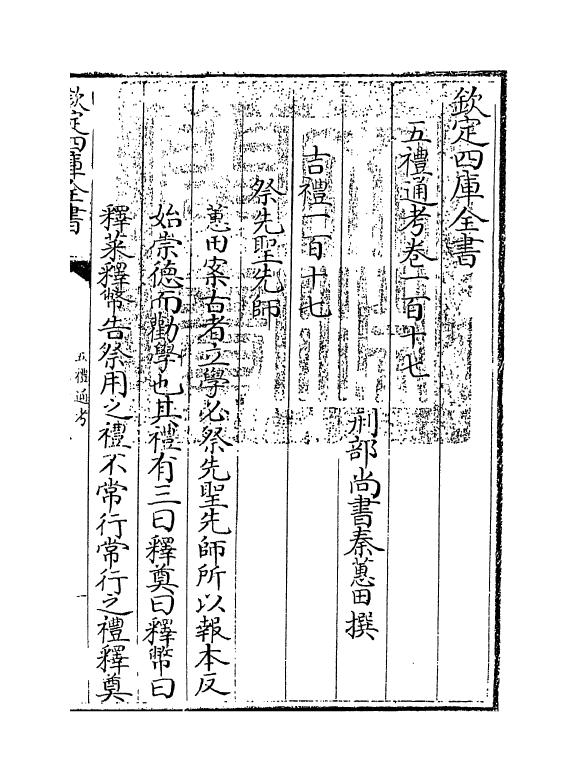 欽定四庫全書
五禮通考卷一百十七
刑部尚書秦蕙田撰
吉禮一百十七
祭先聖先師
蕙田案古者立學必祭先聖先師所以報本反
始崇德而勸學也其禮有三曰釋奠曰釋幣曰
釋菜釋幣告祭用之禮不常行常行之禮釋奠
欽定四庫全書
五禮通考
一